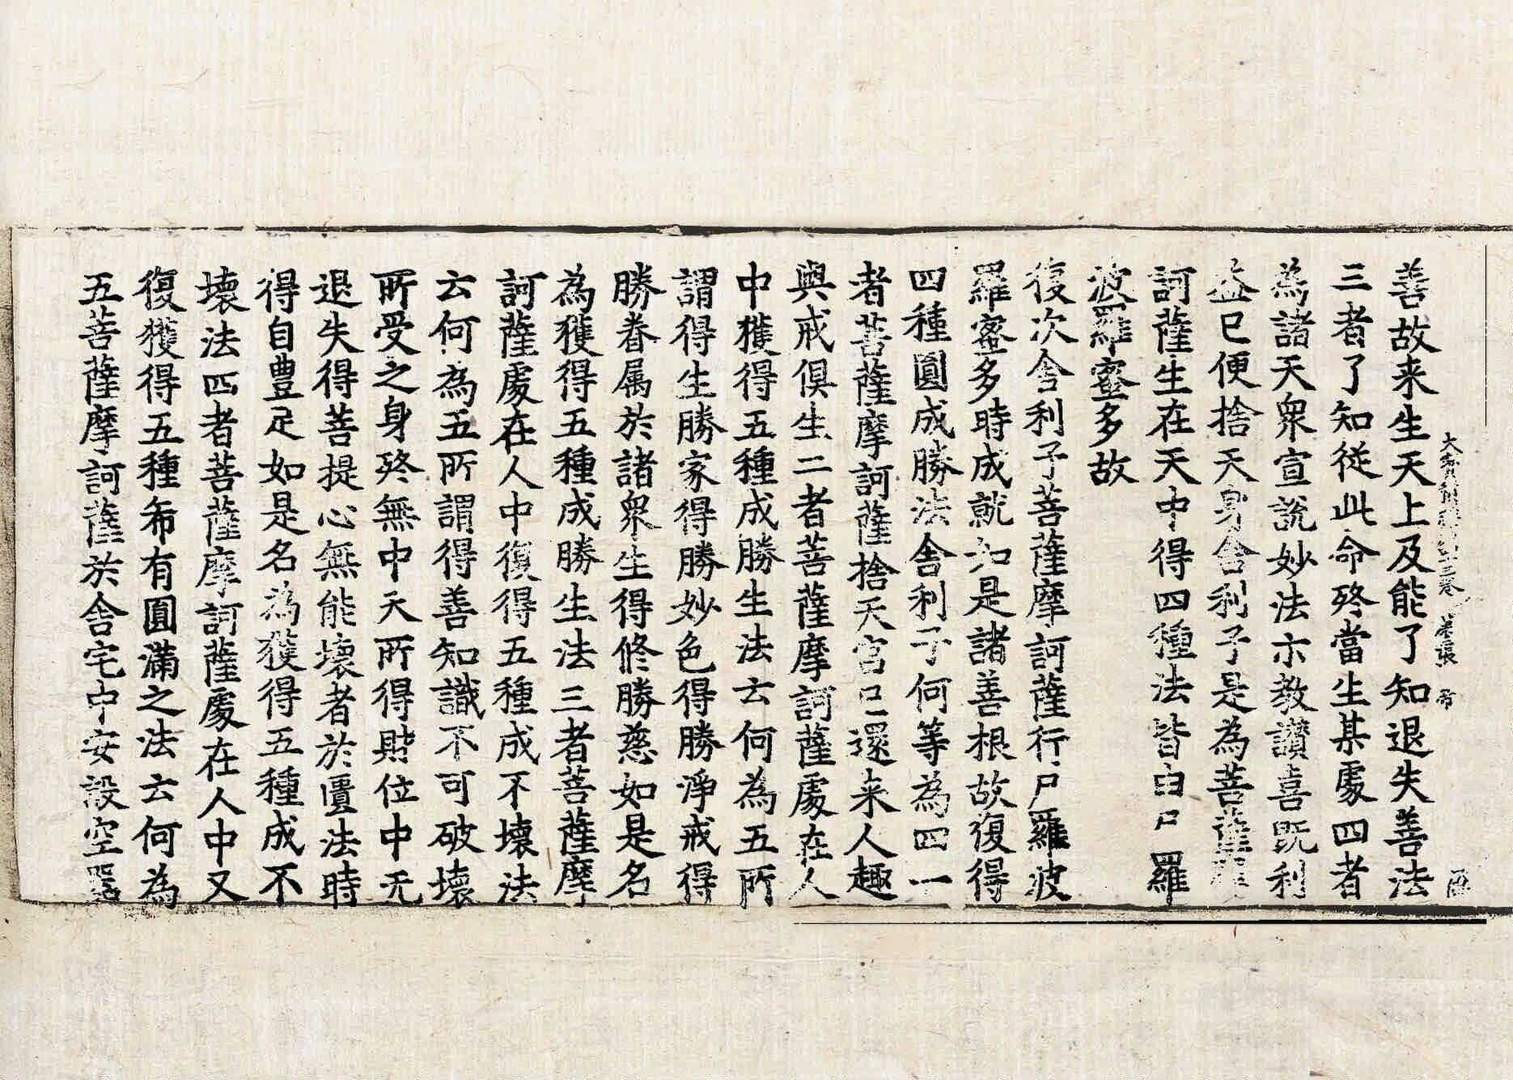 善故来生天上及能了知退失善法
三者了知從此命終當生某處四者
為諸天衆宣說妙法示教讃喜既利
益已便捨天身舍利子是為菩薩摩
訶薩生在天中得四種法皆由尸羅
波羅蜜多故
復次舍利子菩薩摩訶薩行尸羅波
羅蜜多時成就如是諸善根故復得
四種圓成勝法舍利子何等為四一
者菩薩摩訶薩捨天宮已還来人趣
與戒俱生二者菩薩摩訶薩處在人
中獲得五種成勝生法云何為五所
謂得生勝家得勝妙色得勝淨戒得
勝眷屬於諸衆生得修勝慈如是名
為獲得五種成勝生法三者菩薩摩
訶薩處在人中復得五種成不壞法
云何為五所謂得善知識不可破壞
所受之身終無中夭所得財位中无
退失得菩提心無能壞者於匱法時
得自豊足如是名為獲得五種成不
壞法四者菩薩摩訶薩處在人中又
復獲得五種希有圓滿之法云何為
五菩薩摩訶薩於舍宅中安設空器